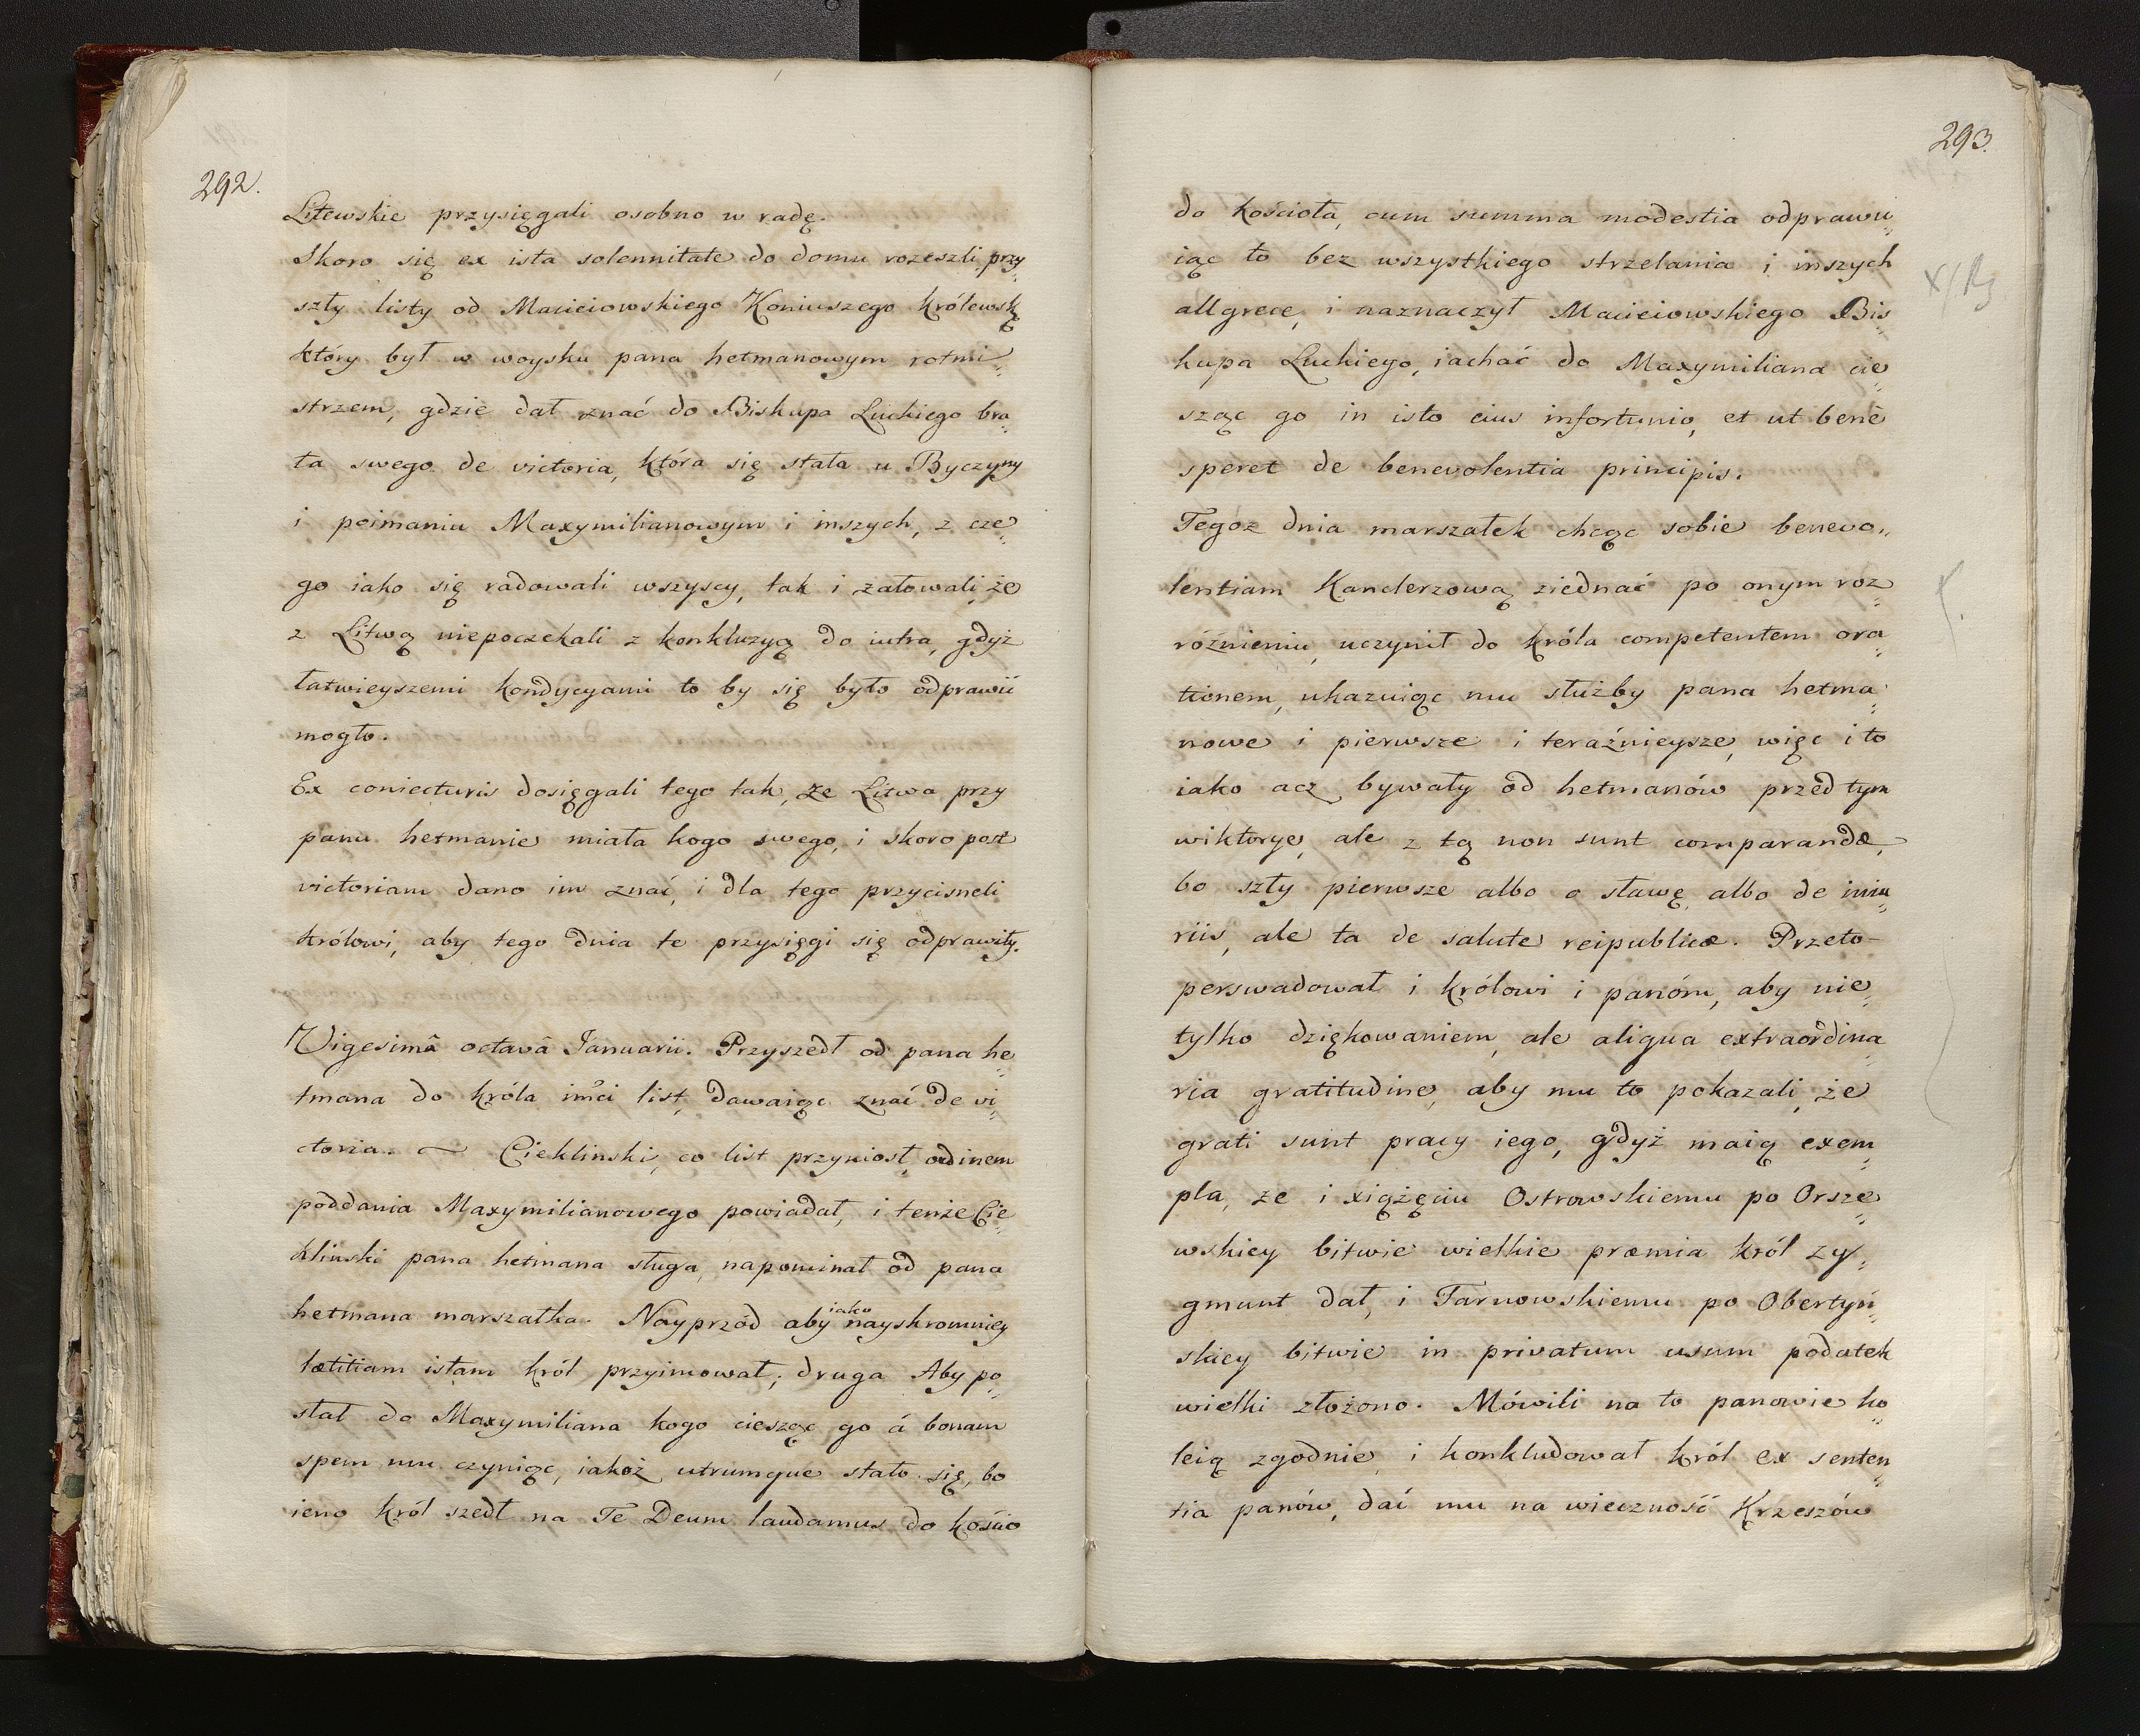 292.
Litewskie przysięgali osobno w radę.
Skoro się ex ista solennitate do domu rozeszli, przy„
szły listy od Macieiowskiego Koniuszego królewsk:
który był w woysku pana hetmanowym rotmi„
strzem, gdzie dał znać do Biskupa Luckiego bra„
ta swego de victoria, która się stała u Byczyny
i poimaniu Maxymilianowym i inszych, z cze„
go iako się radowali wszyscy, tak i załowali, że
z Litwą niepoczekali z konkluzyą do iutra, gdyż
łatwieyszemi kondycyami to by się było odprawić
mogło.
Ex coniecturis dosięgali tego tak, ze Litwa przy
panu hetmanie miała kogo swego, i skoro post
victoriam dano im znać, i dla tego przycisneli
królowi, aby tego dnia te przysięgi się odprawiły.
Vigesimâ octavâ Januarii. Przyszedł od pana he„
tmana do króla imci list, dawaiąc znać de vi„
ctoria. ~ Cieklinski, co list przyniosł, ordinem
poddania Maxymilianowego powiadał, i tenże Cie„
klinski pana hetmana sługa, napominał od pana
hetmana marszałka. Nayprzód aby iako nayskromniey
lætitiam istam król przyimował; druga Aby po„
słał do Maxymiliana kogo ciesząc go á bonam
spem mu czyniąc, iakoż utrumque stało się, bo
ieno król szedł na Te Deum laudamus do kościo
293.
do kościoła, cum summa modestia odprawu„
iąc to bez wszystkiego strzelania i inszych
allgrece, i naznaczył Macieiowskiego Bis„
kupa Luckiego, iachać do Maxymiliana cie„
sząc go in isto eius infortunio, et ut benè
speret de benevolentia principis.
Tegoz dnia marszałek chcąc sobie benevo„
lentiam Kanclerzową ziednać po onym roz„
różnieniu, uczynił do króla competentem ora„
tionem, ukazuiąc mu służby pana hetma„
nowe i pierwsze i teraźnieysze, więc i to
iako acz bywały od hetmanów przed tym
wiktorye, ale z tą non sunt comparandæ,
bo szły pierwsze albo o sławę, albo de iniu„
riis, ale ta de salute reipublicæ. Przeto
perswadował i królowi i panóm, aby nie„
tylko dziękowaniem, ale aliqua extraordina„
ria gratitudine, aby mu to pokazali, że
grati sunt pracy iego, gdyż maią exem„
pla, ze i xiążęciu Ostrowskiemu po Orsze„
wskiey bitwie wielkie præmia król Zy„
gmunt dał, i Tarnowskiemu po Obertyń„
skiey bitwie in privatum usum podatek
wielki złożono. Mówili na to panowie ko„
leią zgodnie, i konkludował król ex senten„
tia panów, dać mu na wieczność Krzeszów